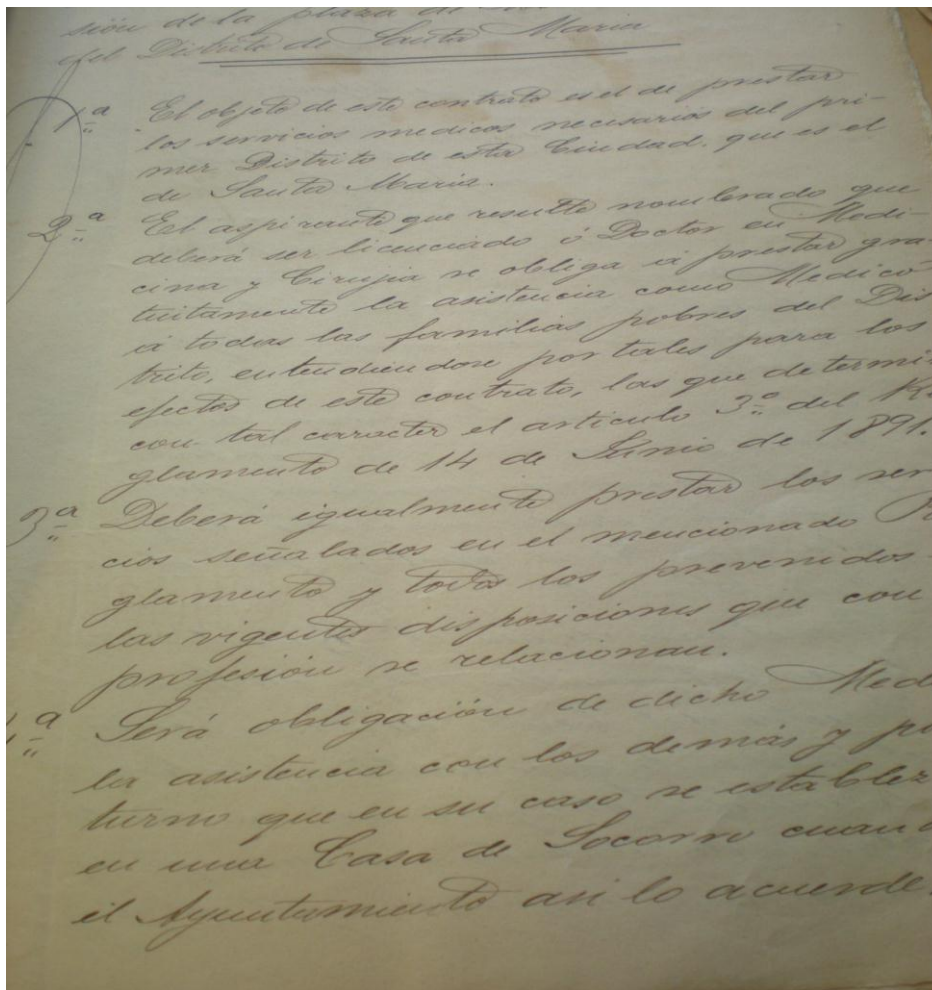 sión de la plaza de
del Distrito de Santa Maria
1.ª El objeto de este contrato es el de prestar
los servicios medicos necesarios del pri-
mer Distrito de esta Ciudad, que es el
de Santa Maria.
2.ª El aspirante que resulte nombrado que
deberá ser licenciado ó Doctor en Medi-
cina y Cirujia se obliga á prestar gra-
tuitamente la asistencia como Medico
á todas las familias pobres del Dis
trito, entendiendose por tales para los
efectos de este contrato, las que determi
con tal caracter el articulo 3.º del R
glamento de 14 de Junio de 1891.
3.ª Deberá igualmente prestar los ser
cios señalados en el mencionado R
glamento y todos los prevenidos
las vigentes disposiciones que con
profesión se relacionan.
ª Será obligación de dicho Med
la asistencia con los demás y p
turno que en su caso se establez
en una Casa de Socorro cuan
el Ayuntamiento asi lo acuerde.